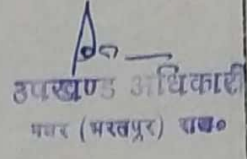 उपखण्ड अधिकारी
(भरतपुर) राज०